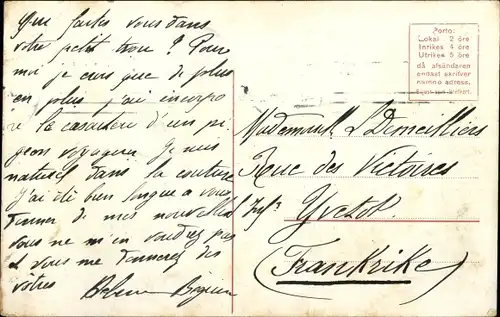 Que faites vous dans
votre petit trou ? Pour
moi je crois que de plus
en plus j'ai incorpo
ré le caractère d'un pi
geon voyageur. Je suis
naturel dans la
J'ai été bien longue a vous
donner de mes nouvelles
vous ne m'en voudrez pas
et vous me donnerez des
vôtres
Porto:
Lokal 2 öre
Inrikes 4 öre
Utrikes 5 öre
då afsändaren
endast skrifver
namn o adress.
Mademoiselle L Demeilliers
Rue des Victoires
Yvetot.
(Frankrike)